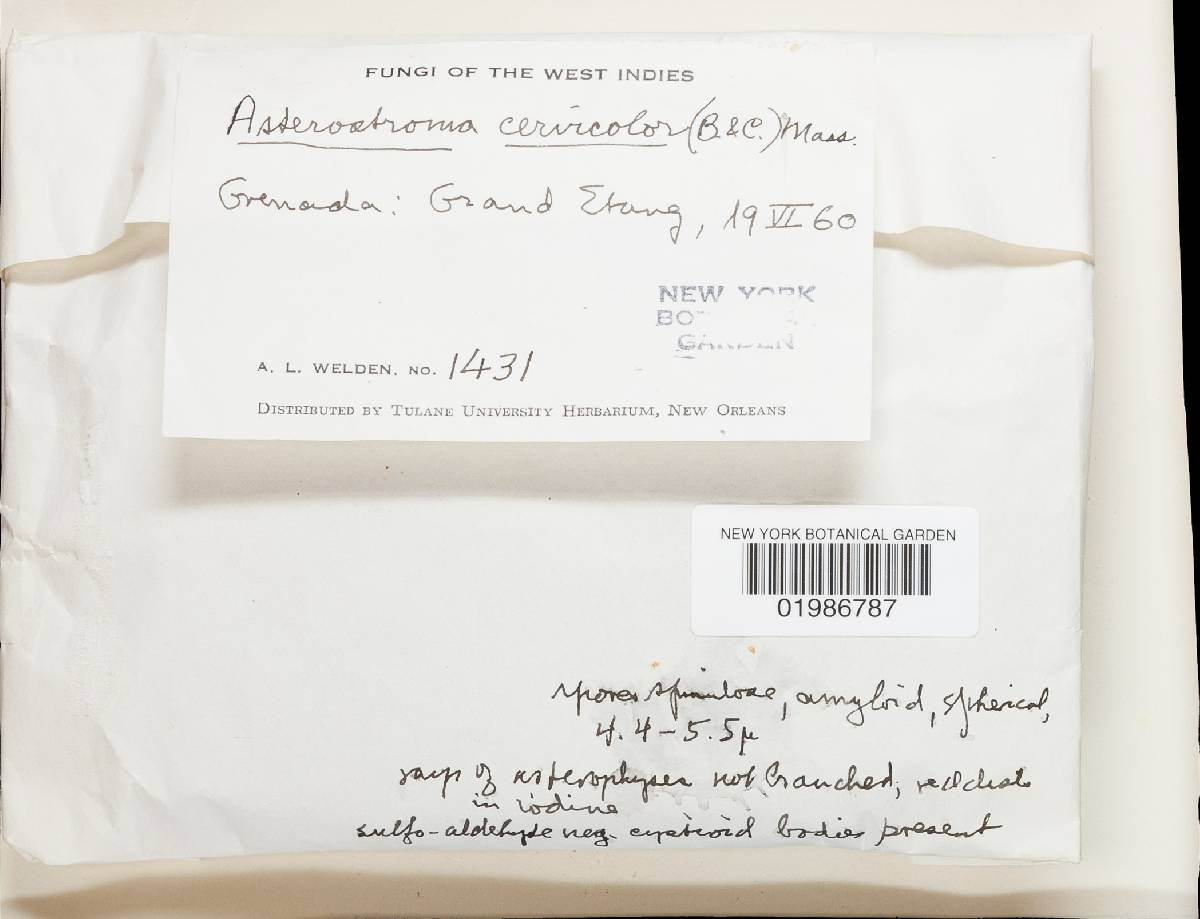 FUNGI OF THE WEST INDIES
Asterostroma cervicolor (B. & C.) Mass.
Grenada: Grand Etang, 19 VI 60
NEW YORK
BO
GARDEN
A. L. WELDEN. NO. 1431
DISTRIBUTED BY TULANE UNIVERSITY HERBARIUM, NEW ORLEANS
NEW YORK BOTANICAL GARDEN
01986787
spores spinulose, amyloid, spherical,
4.4-5.5µ
rays of asterophyses not branched, reddish
in iodine
sulfo-aldehyde neg. cystidioid bodies present